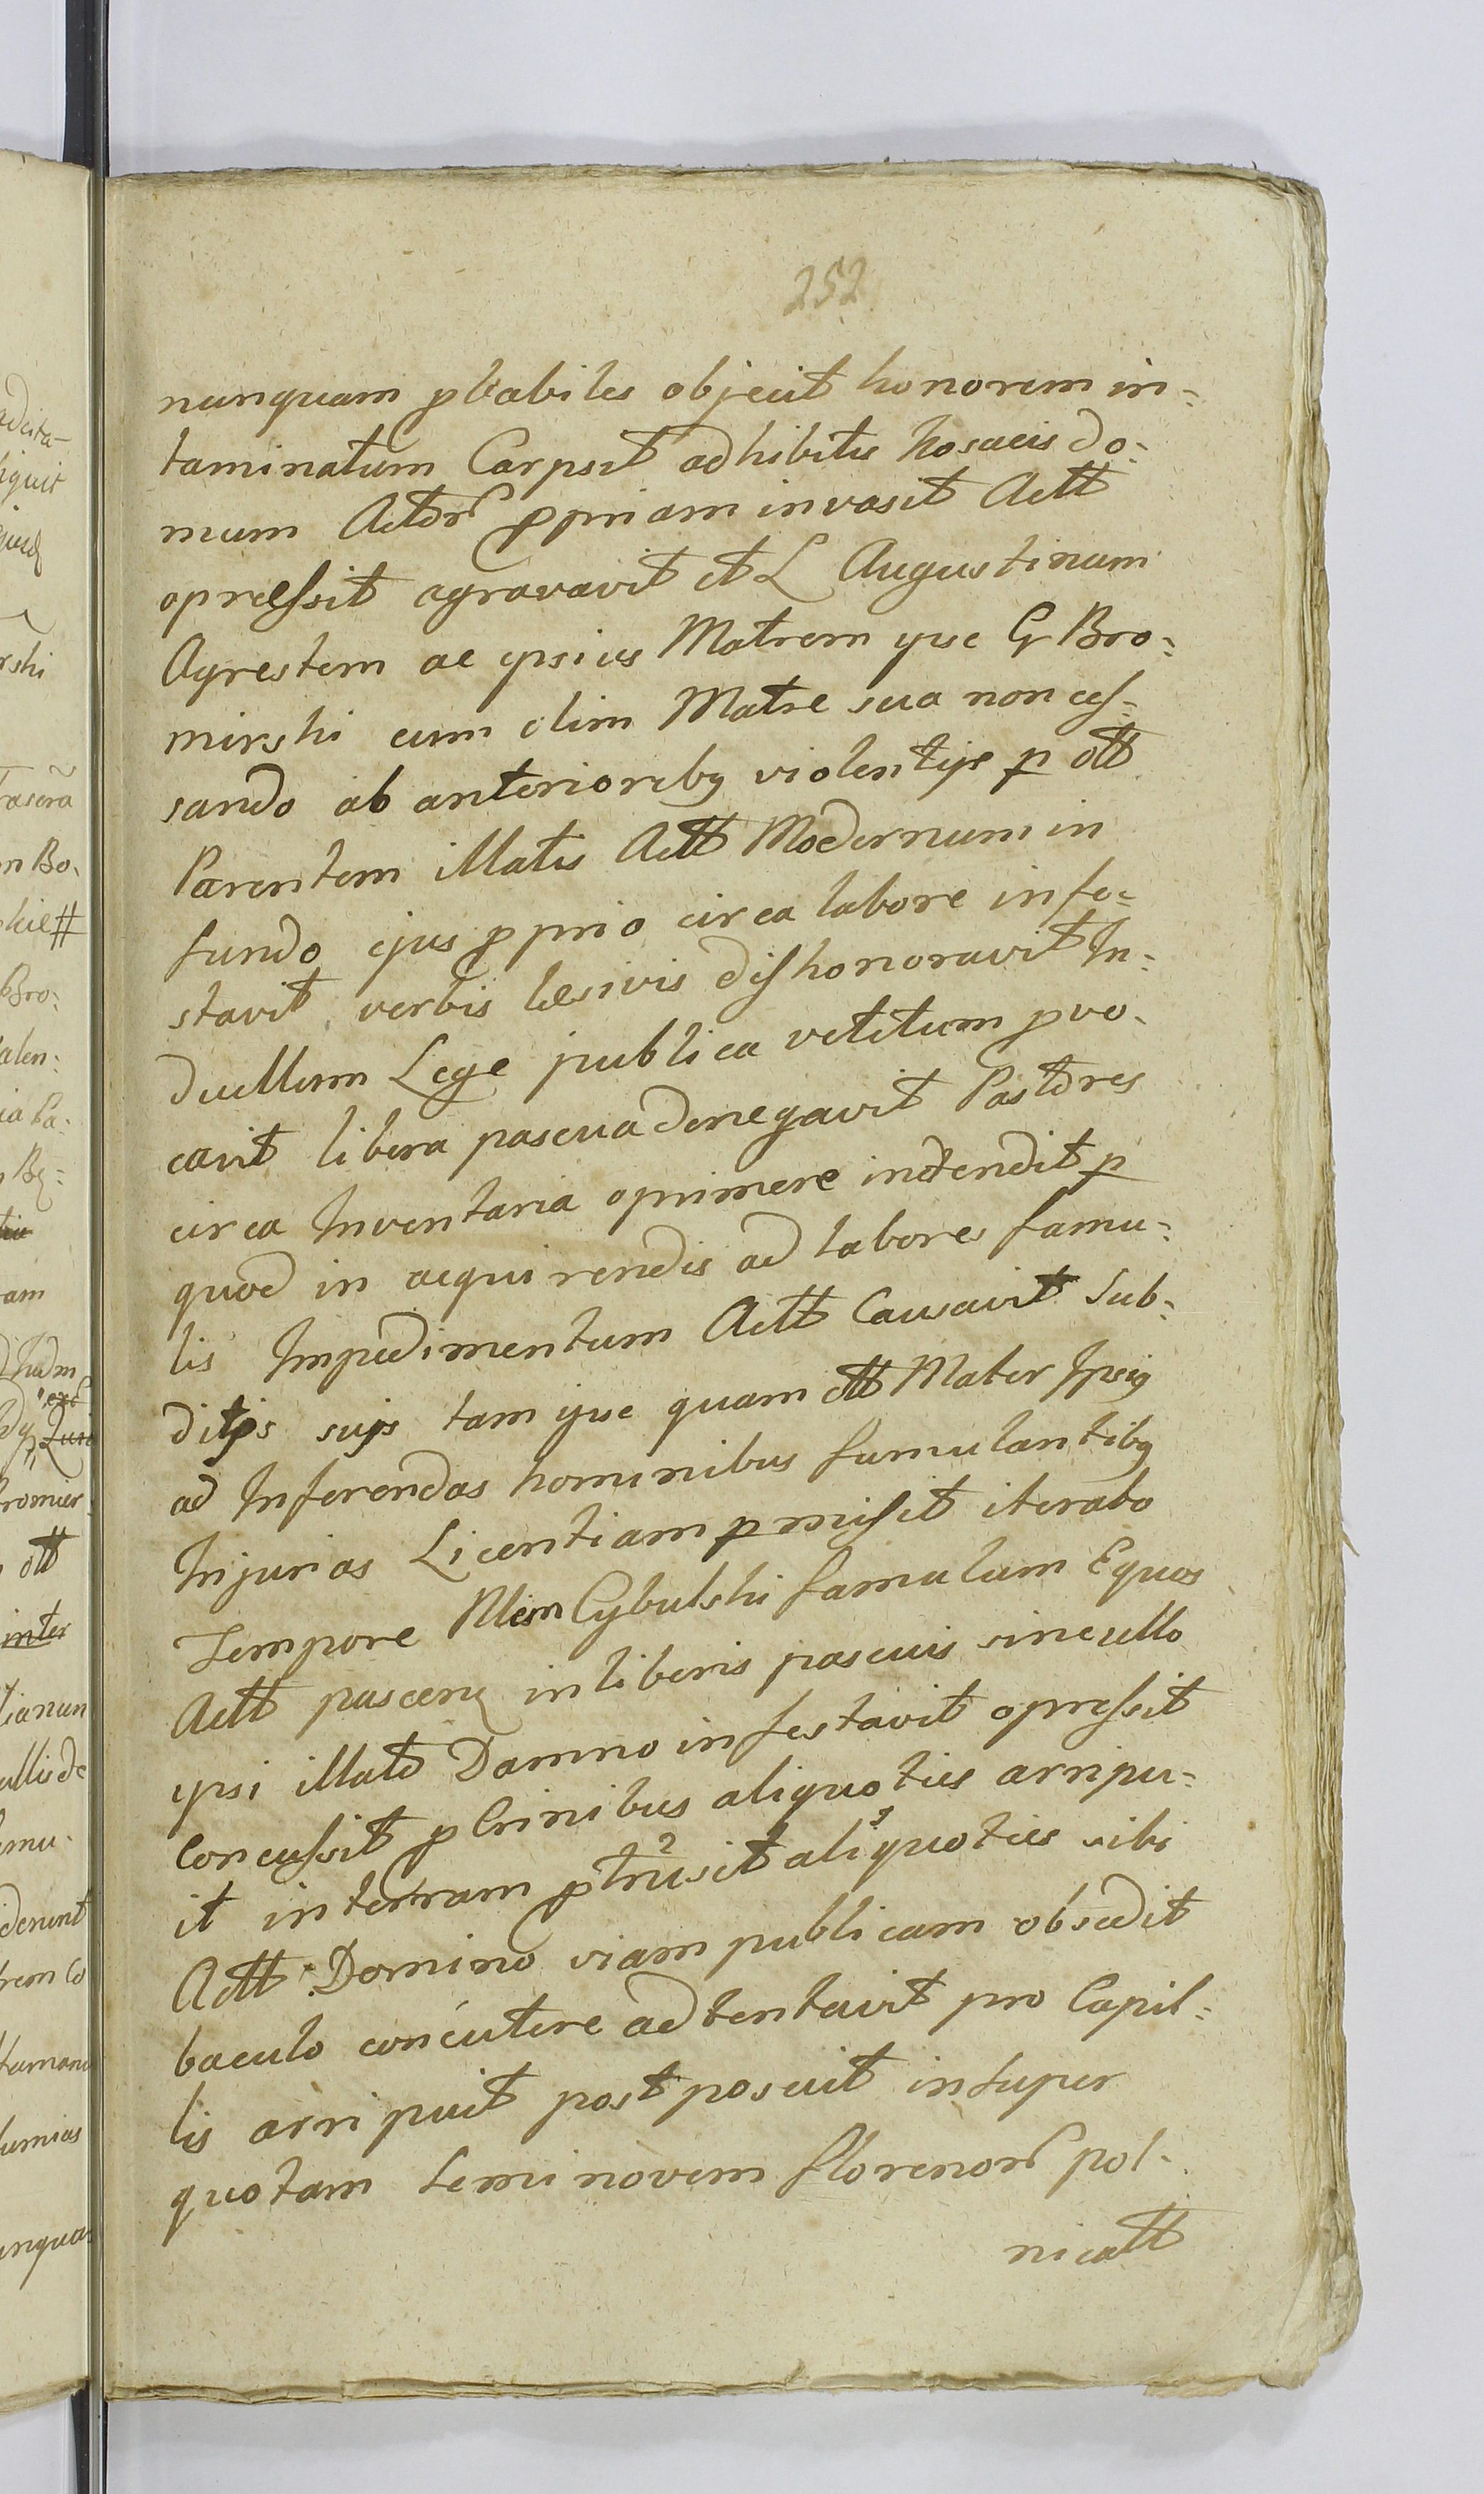 252
nunquam pbabiles objecit honorem in=
taminatum Carpsit adhibitis kosacis do=
mum Actor ppriam invasit Actt
opressit agravavit et L Augustinum
Agrestem ac ipsius Matrem ipse G Bro=
mirski cum olim Matre sua non ces=
sando ab anterioreby violentijs p ott
Parentem illatis Actt Modernum in
fundo ejus pprio circa labore infe=
stavit verbis lesivis dishonoravit In=
duellum Lege publica vetitum pvo=
cavit libera pascua denegavit Pastores
circa Inventaria oprimere intendit p
quod in acquirendis ad labores famu=
lis Impedimentum Actt Causavit Sub=
ditis suis tam ipse quam ott Mater Ipsig
ad Inferendas hominibus famulantiby
Injurias Licentiam pmisit iterato
Tempore Cybulski famulum Equos
Actt pascen in liberis pascuis sine ullo
ipsi illato Damno infestavit opressit
Concussit p Crinibus aliquoties arripu=
it in terram ptrusit aliquoties sibi
Actt Domino viam publicam obsedit
baculo concutere adtentavit pro Capil=
lis arripuit postposuit insuper
quotam semi novem florenor pol=
nicatt
adcita
iquit
rski
n Bo
Bro:
alen:
ia Pa:
am
ott
inter
ianum
ullis de
mu
derunt
rem Co
umias
unqua